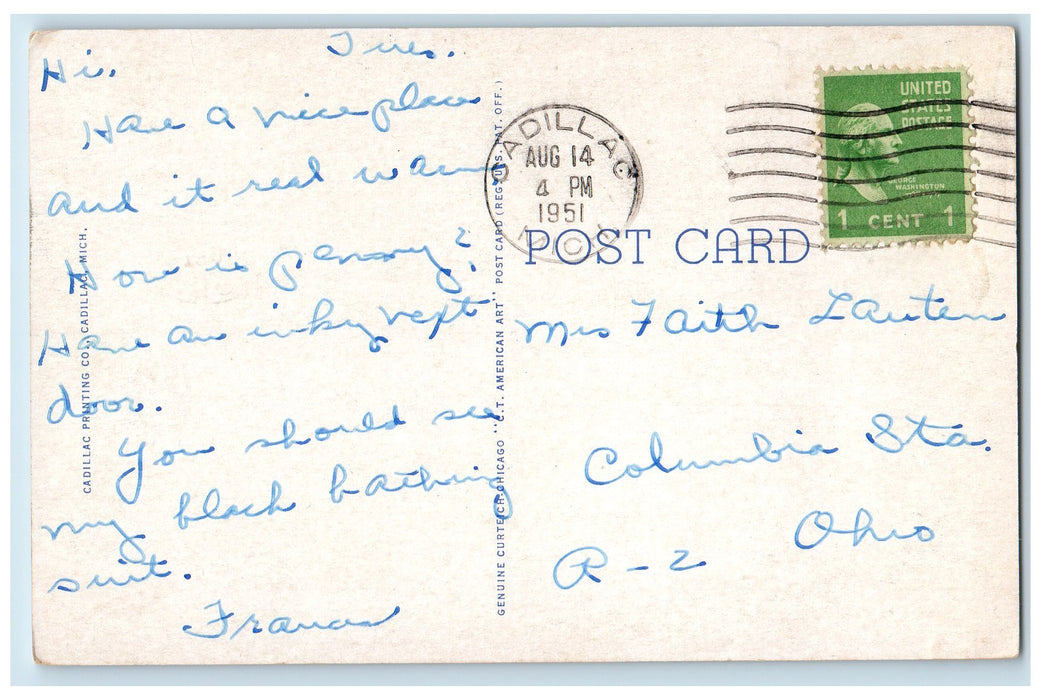 Tues.
Hi.
Have a nice place
and it real warm
How is penny?
Have an inky next
door.
You should see
my black bathing
suit.
Frances
CADILLAC PRINTING CO., CADILLAC, MICH.
GENUINE CURTEICH-CHICAGO "C.T. AMERICAN ART" POST CARD (REG. U.S. PAT. OFF.)
CADILLAC
AUG 14
4 PM
1951
MICH.
UNITED
STATES
POSTAGE
GEORGE
WASHINGTON
1 CENT 1
POST CARD
Mrs Faith Lauten
Columbia Sta.
Ohio
R-2